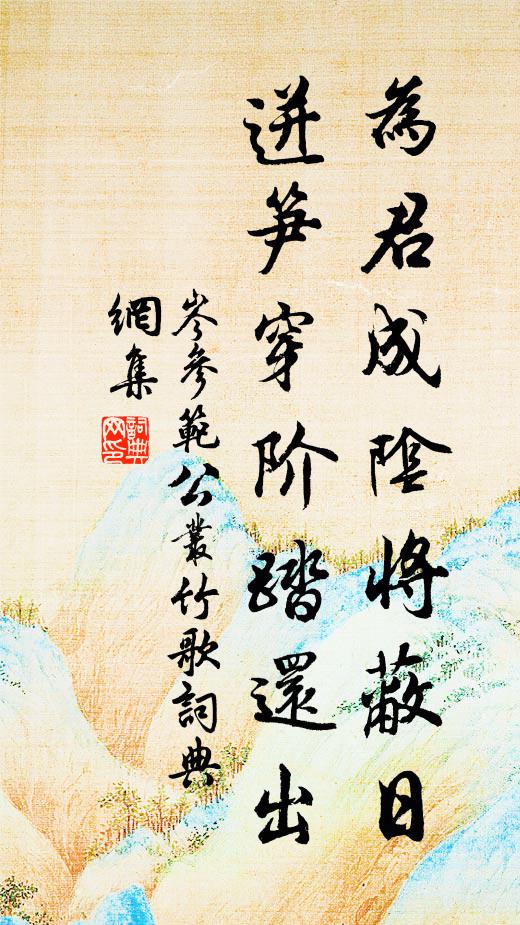 為君成陰將蔽日
迸笋穿阶踏還出
岑參範公叢竹歌詞典
網集
詞典
网印